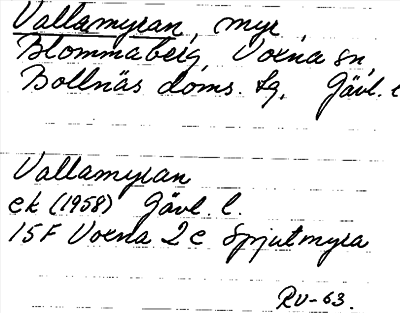 Vallamyran, myr,
Blommaberg, Voxna sn,
Bollnäs doms. sg, Gävl. l
Vallamyran
ek (1958) Gävl. l.
15F Voxna 2c Spjutmyra
RV-63.